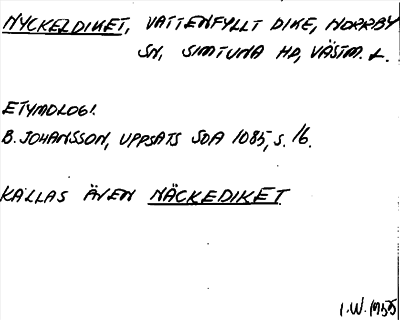 NYCKELDIKET, VATTENFYLLT DIKE, NORRBY
SN, SIMTUNA HD, VÄSTM. L.
ETYMOLOGI.
B. JOHANSSON, UPPSATS SOA 1085, S. 16.
KALLAS ÄVEN NÄCKEDIKET
I.W. 1955